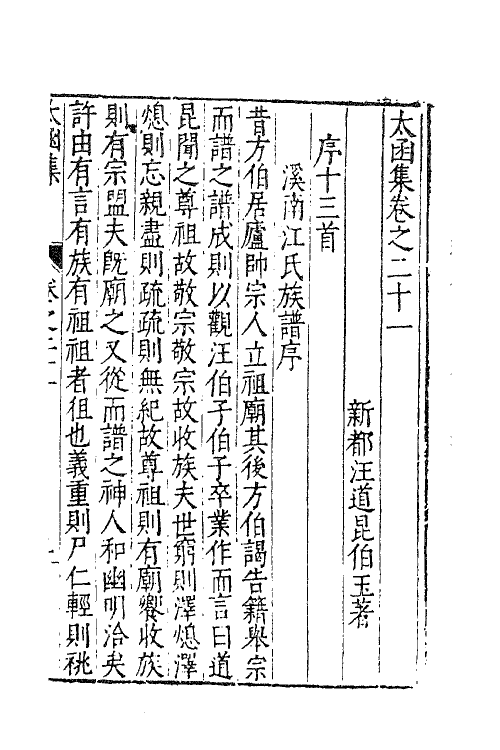 太函集卷之二十一
新都汪道昆伯玉著
序十三首
溪南江氏族譜序
昔方伯居廬帥宗人立祖廟其後方伯謁告籍舉宗
而譜之譜成則以觀汪伯子伯子卒業作而言曰道
昆聞之尊祖故敬宗敬宗故收族夫世窮則澤熄澤
熄則忘親盡則疏疏則無紀故尊祖則有廟饗收族
則有宗盟夫旣廟之又從而譜之神人和幽明洽矣
許由有言有族有祖祖者徂也義重則尸仁輕則祧
太函集
卷之二十一